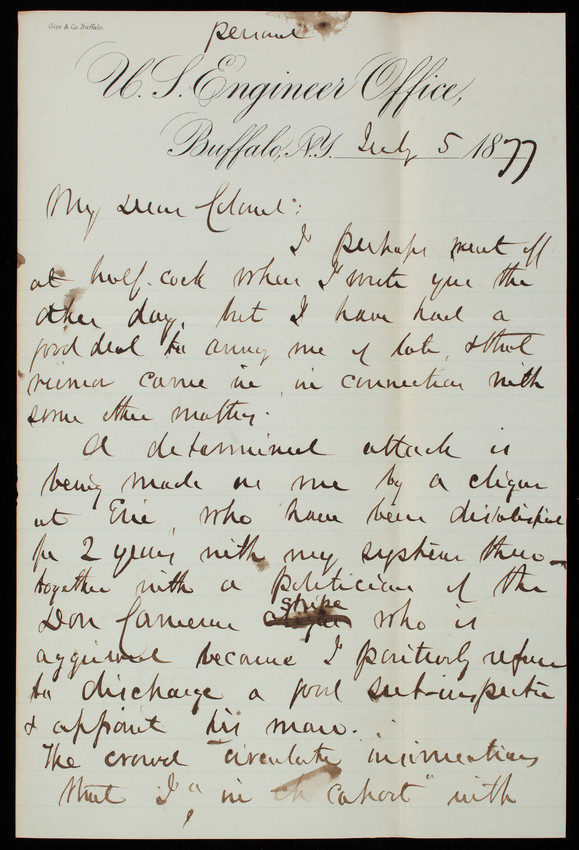 Gies & Co. Buffalo.
Personal
U. S. Engineer Office,
Buffalo, N.Y. July 5 1877
My Dear Colonel:
I perhaps went off
at half-cock when I wrote you the
other day, but I have had a
good deal to annoy me of late, & that
rumor came in, in connection with
some other matters.
A determined attack is
being made on me by a clique
at Erie, who have been dissatisfied
for 2 years with my system there—
together with a politician of the
Don Cameron stripe who is
aggrieved because I positively refuse
to discharge a good sub-inspector
& appoint his man.
The crowd circulate insinuations
that I "in cahoot" with